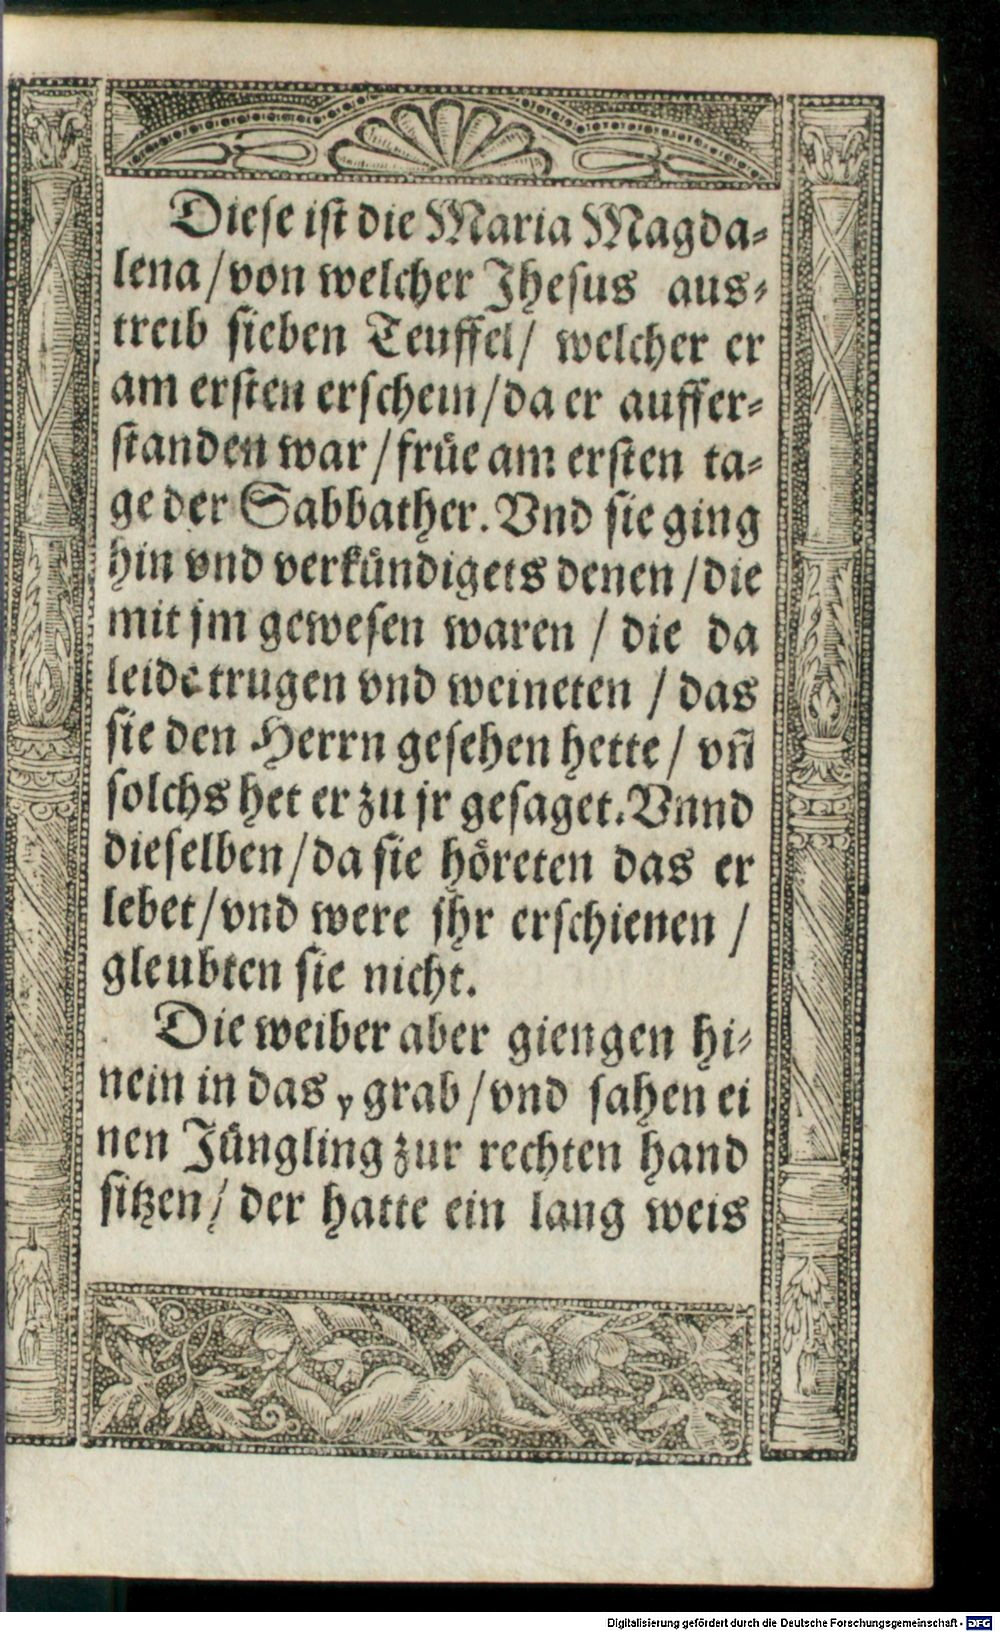 Diese ist die Maria Magda-
lena / von welcher Jhesus aus-
treib sieben Teuffel / welcher er
am ersten erschein / da er auffer-
standen war / früe am ersten ta-
ge der Sabbather. Vnd sie ging
hin vnd verkündigets denen / die
mit jm gewesen waren / die da
leide trugen vnd weineten / das
sie den Herrn gesehen hette / vñ
solchs het er zu jr gesaget. Vnnd
dieselben / da sie höreten das er
lebet / vnd were jhr erschienen /
gleubten sie nicht.
Die weiber aber giengen hi-
nein in das grab / vnd sahen ei
nen Jüngling zur rechten hand
sitzen / der hatte ein lang weis
Digitalisierung gefördert durch die Deutsche Forschungsgemeinschaft - DFG